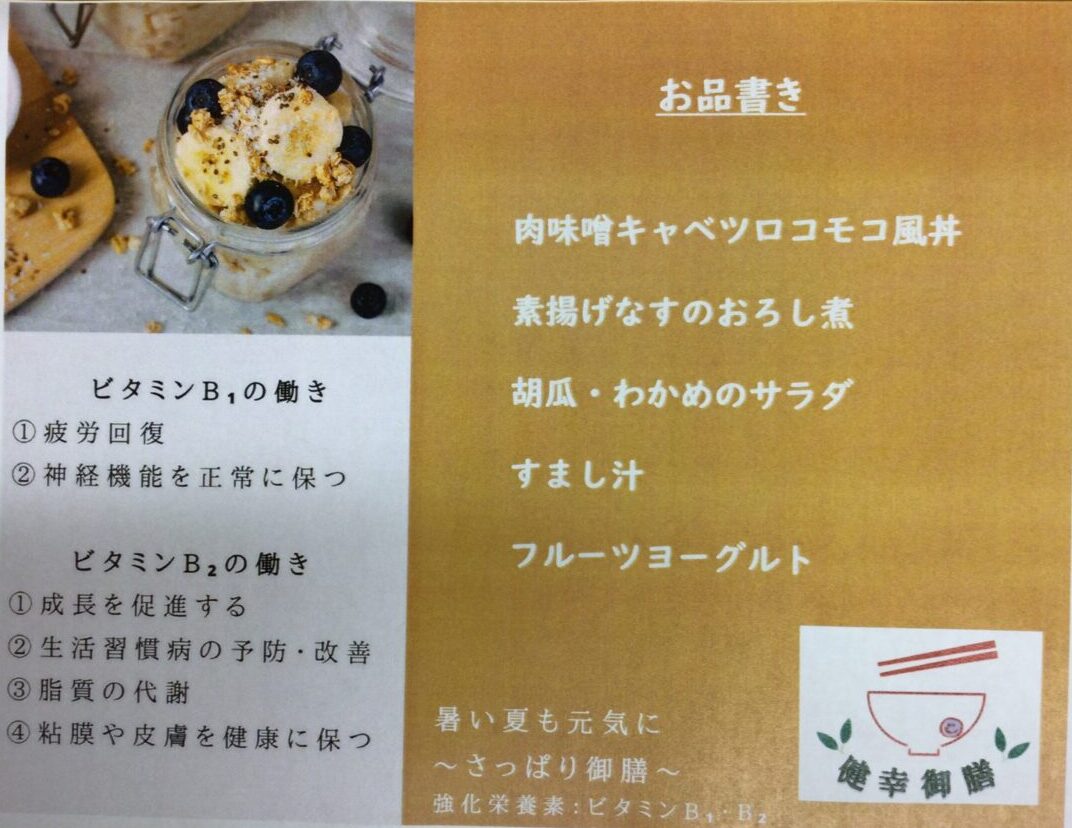 ビタミンB₁の働き
①疲労回復
②神経機能を正常に保つ
ビタミンB₂の働き
①成長を促進する
②生活習慣病の予防・改善
③脂質の代謝
④粘膜や皮膚を健康に保つ
お品書き
肉味噌キャベツロコモコ風丼
素揚げなすのおろし煮
胡瓜・わかめのサラダ
すまし汁
フルーツヨーグルト
暑い夏も元気に
～さっぱり御膳～
強化栄養素:ビタミンB₁・B₂
健幸御膳